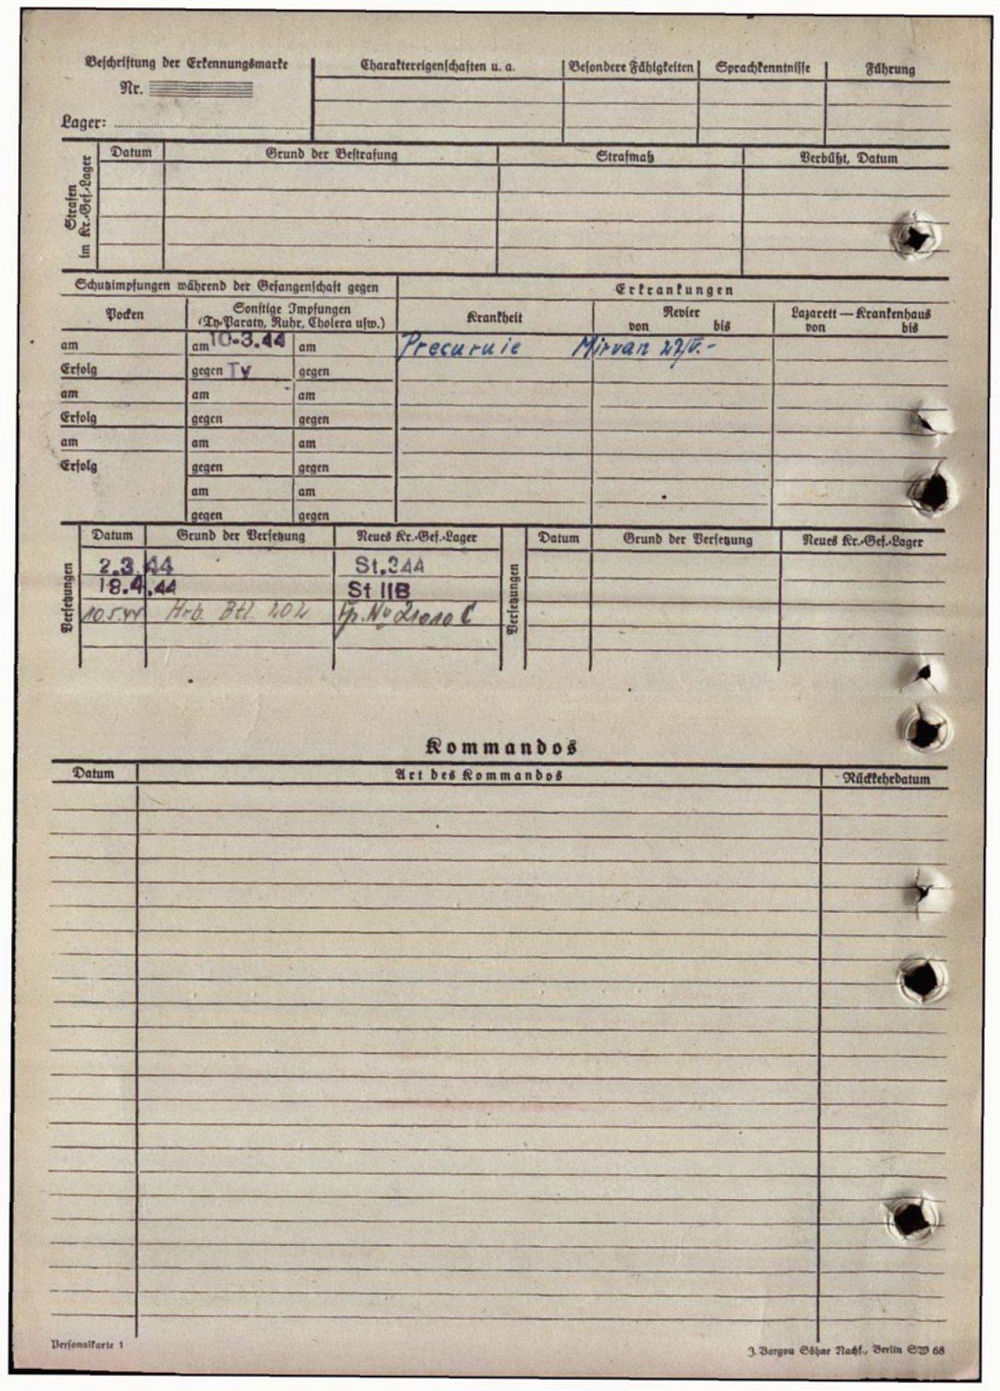 Beschriftung der Erkennungsmarke
Nr.
Lager:
Charaktereigenschaften u. a.
Besondere Fähigkeiten
Sprachkenntnisse
Führung
Strafen im Kr.-Gef.-Lager
Datum
Grund der Bestrafung
Strafmaß
Verbüßt, Datum
Schutzimpfungen während der Gefangenschaft gegen
Erkrankungen
Pocken
Sonstige Impfungen
(Ty-Paraty, Ruhr, Cholera usw.)
Krankheit
Revier
von bis
Lazarett — Krankenhaus
von bis
am am 10-3.44 am
Erfolg gegen Ty gegen
am am am
Erfolg gegen gegen
am am am
Erfolg gegen gegen
am am
gegen gegen
Versetzungen
Datum Grund der Versetzung Neues Kr.-Gef.-Lager
2.3.44 St.344
18.4.44 St IIB
10.5.44 Arb. Btl 202
Versetzungen
Datum Grund der Versetzung Neues Kr.-Gef.-Lager
Kommandos
Datum Art des Kommandos Rückkehrdatum
Personalkarte 1
J. Bargou Söhne Nachf., Berlin SW 68